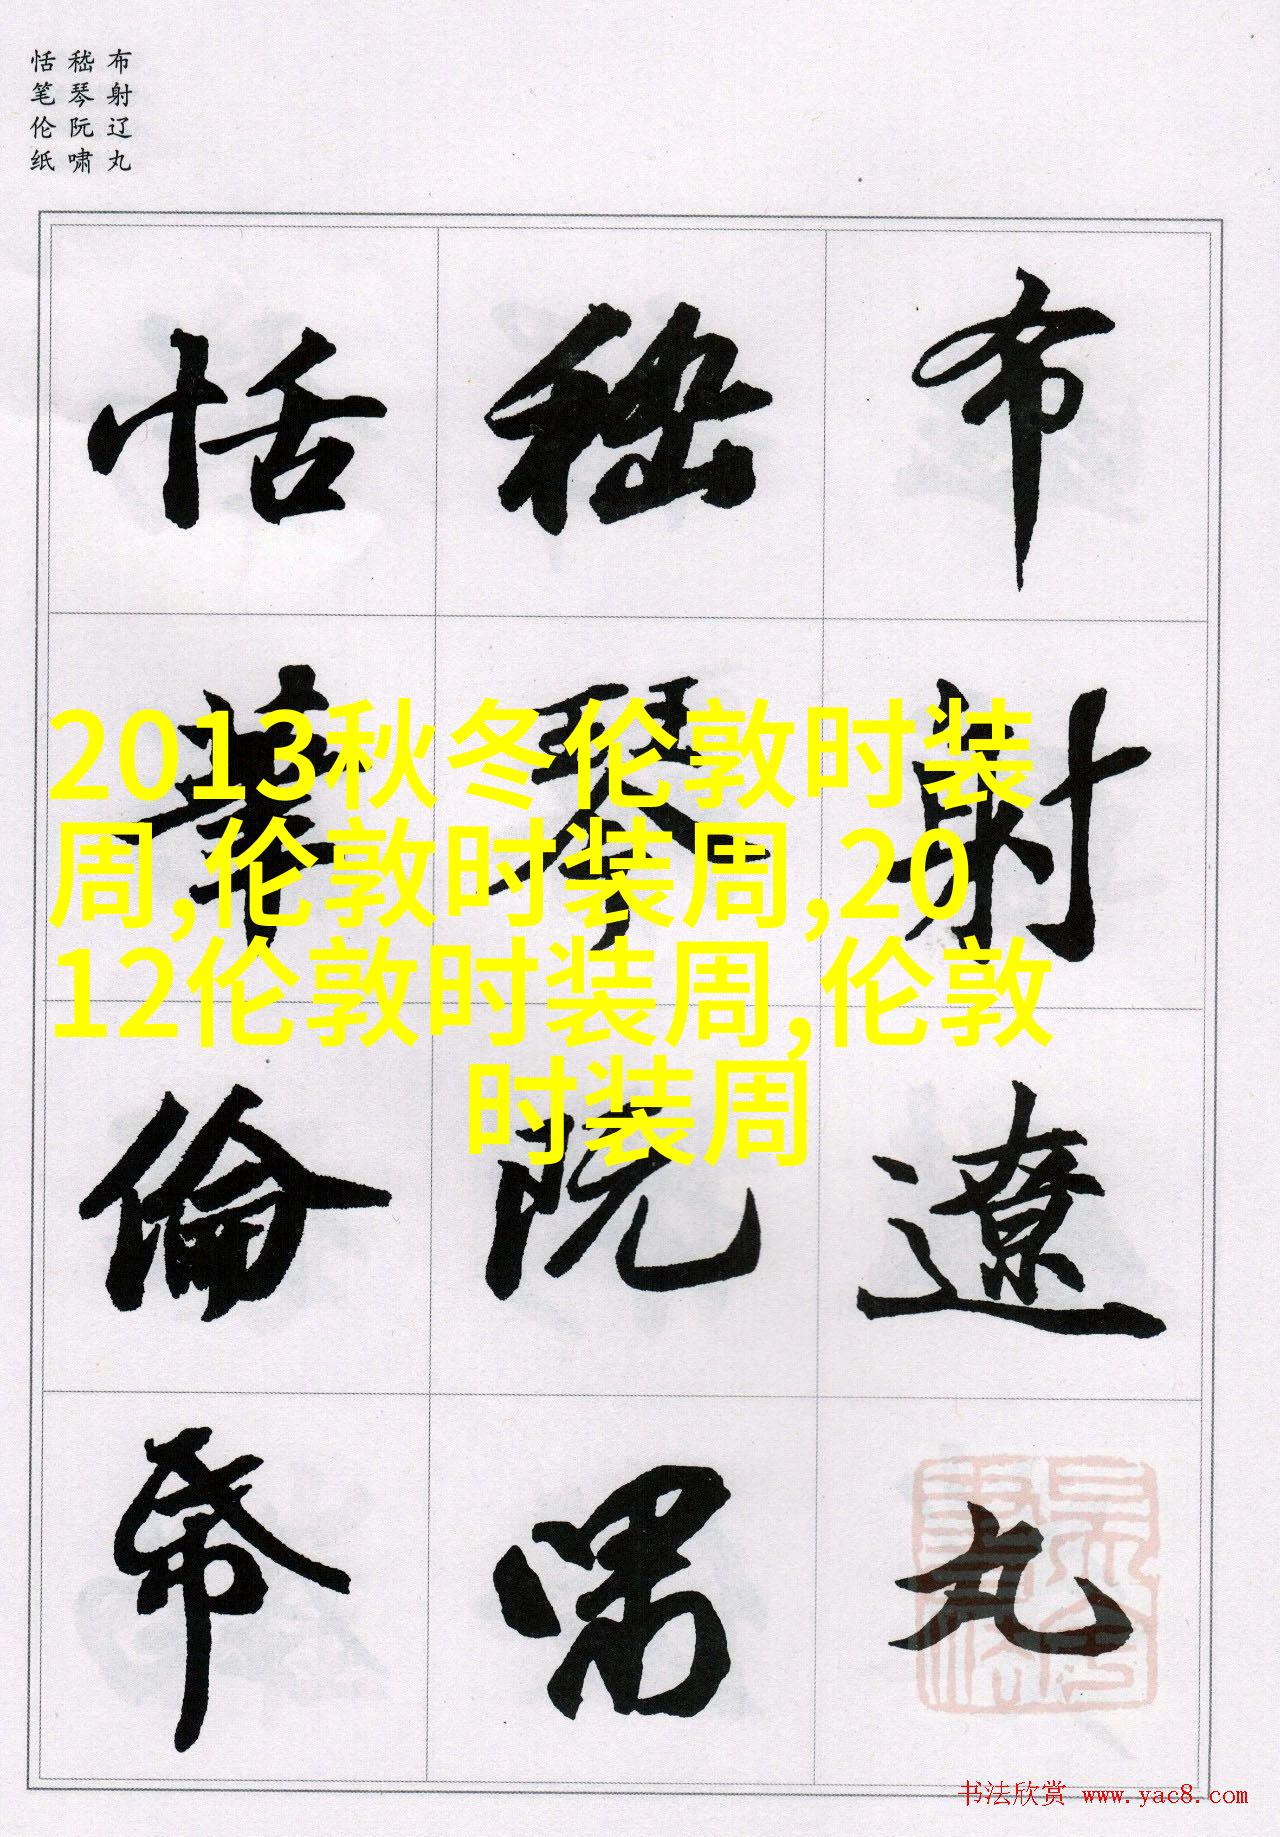 布射辽丸
嵇琴阮啸
恬笔伦纸
布射遼丸
嵇琴阮嘯
恬筆倫帋
2013秋冬伦敦时装
周,伦敦时装周,20
12伦敦时装周,伦敦
时装周
书法欣赏 www.yac8.com